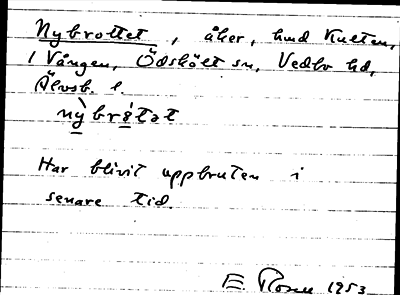 Nybrottet, åker, hmd Kulten,
1 Vången, Ödskölt sn, Vedbo hd,
Älvsb. l.
nỳbrɷ́tət
Har blivit uppbruten i
senare tid.
E Rosell 1953